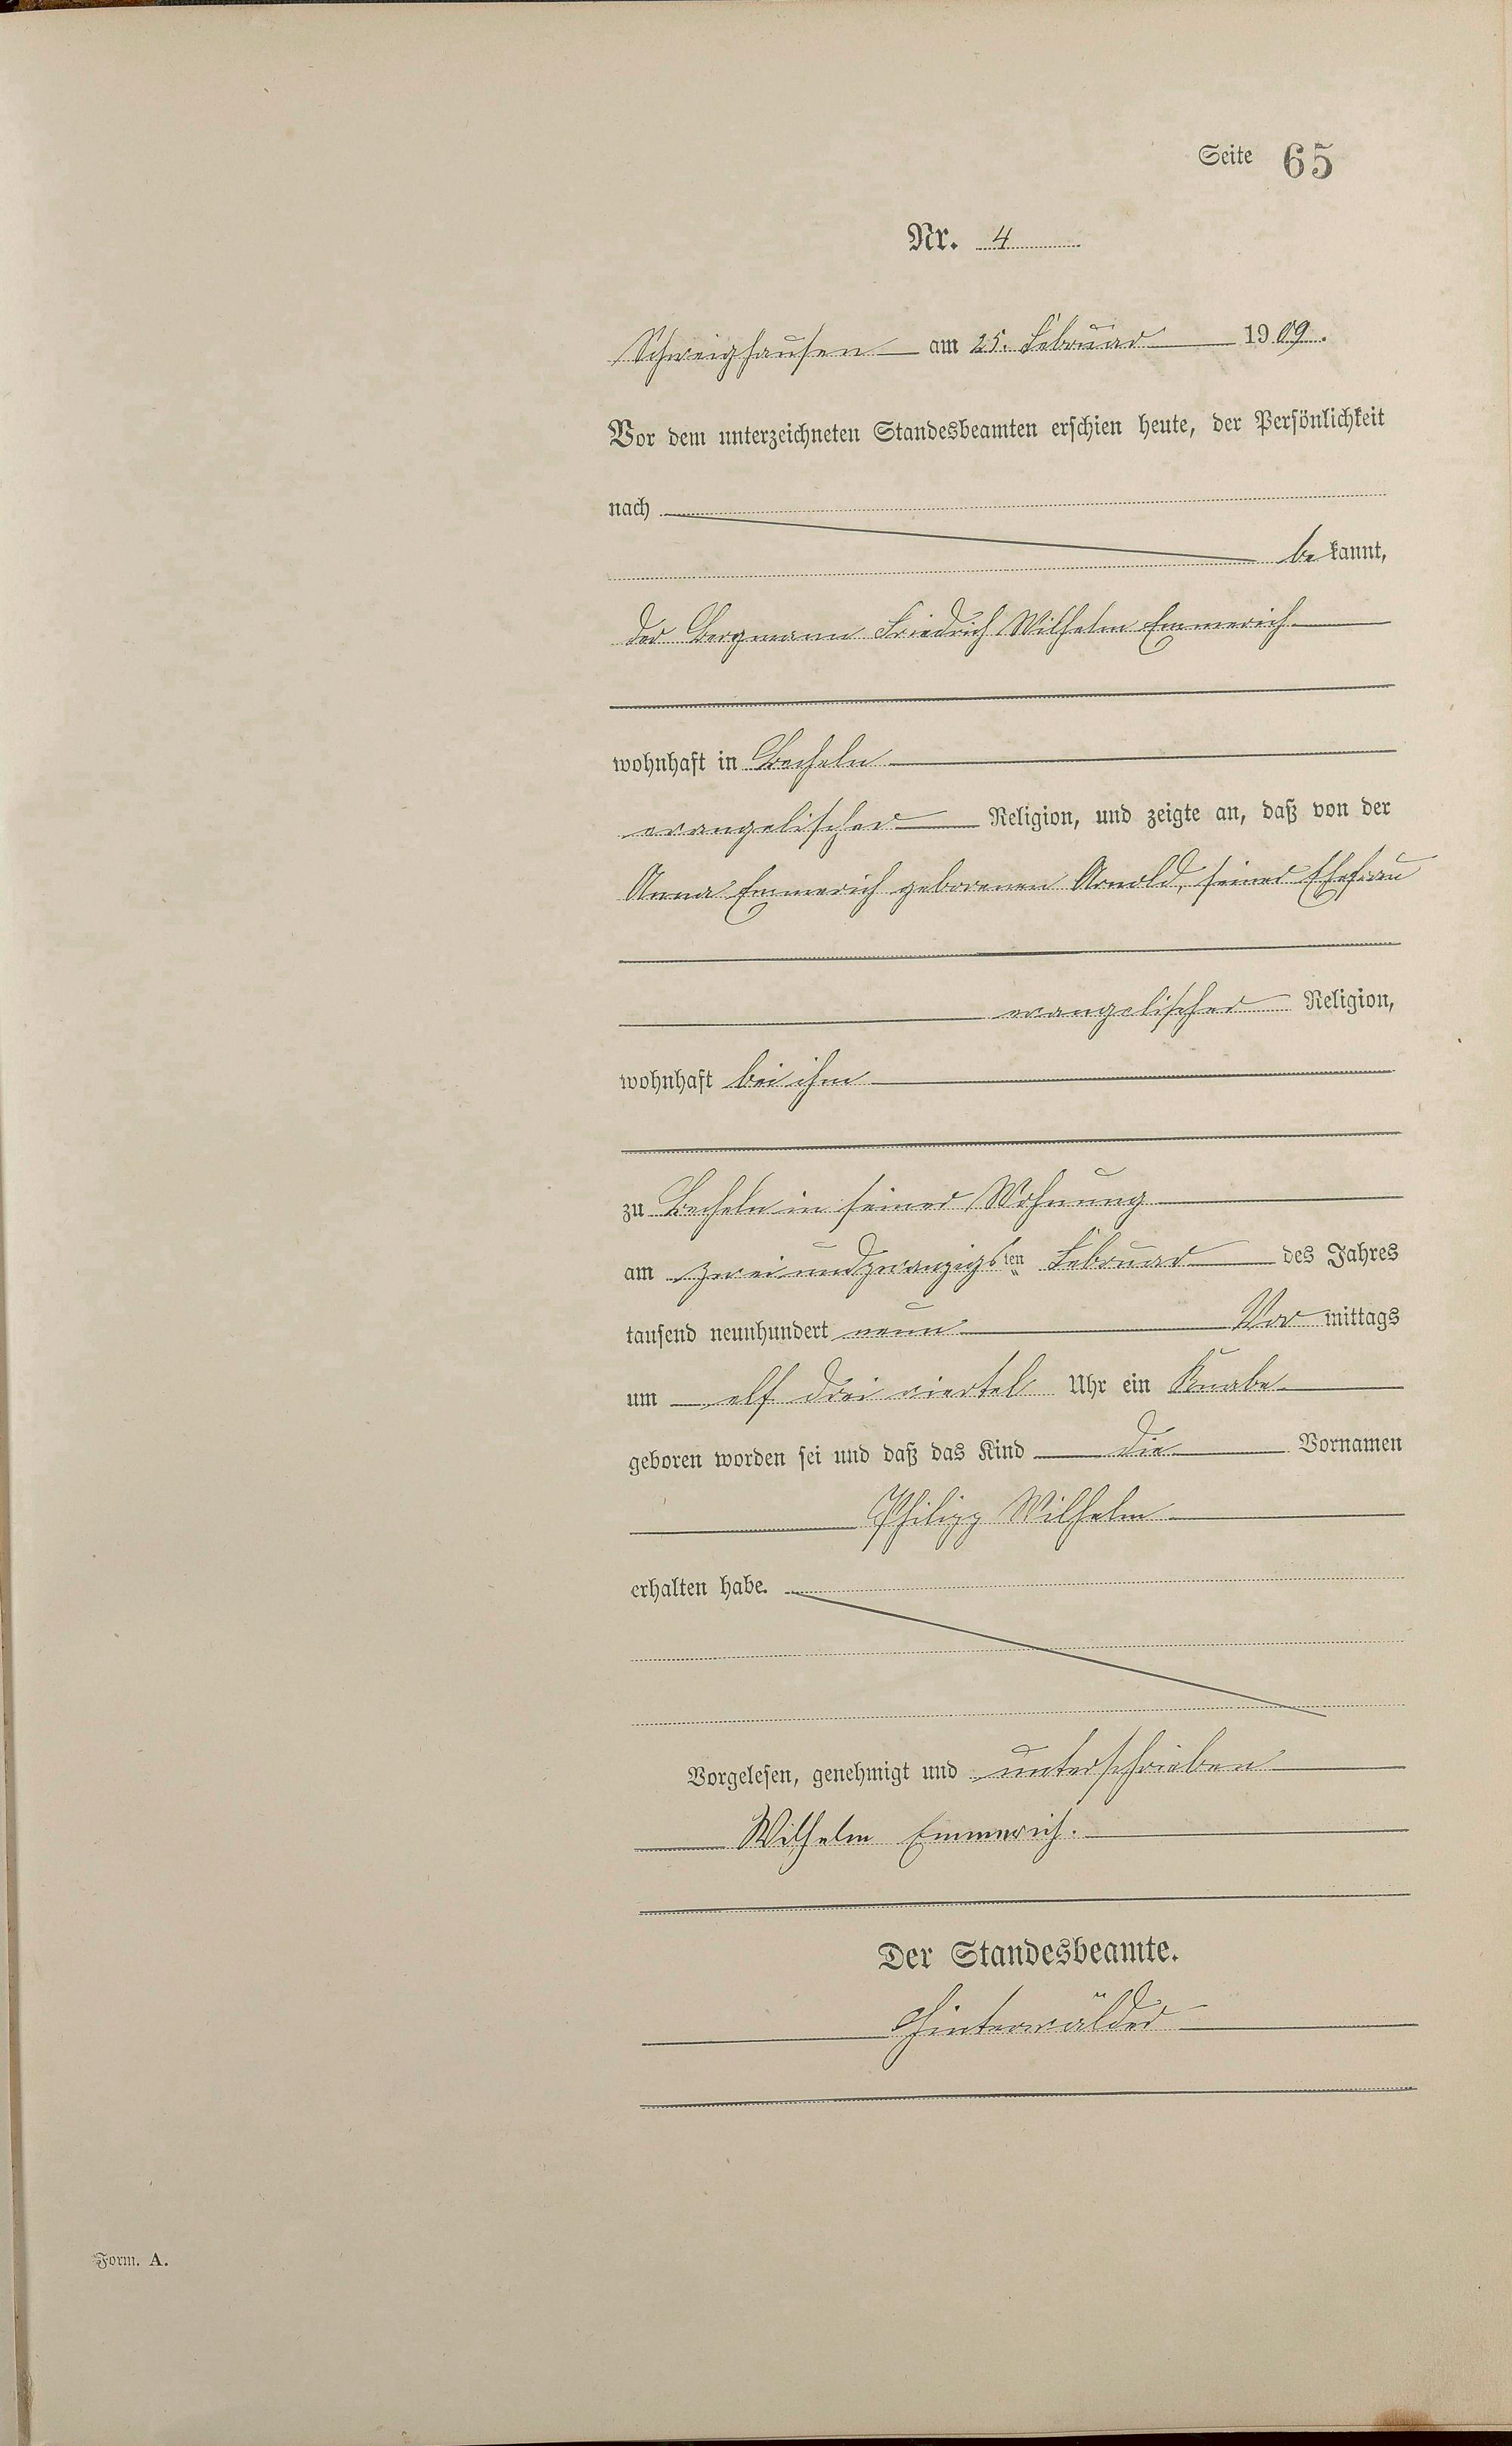 Seite 65
Nr. 4
Schweighausen am 25. Februar 1909.
Vor dem unterzeichneten Standesbeamten erschien heute, der Persönlichkeit
nach
bekannt,
der Bergmann Friedrich Wilhelm Emmerich
wohnhaft in Becheln
evangelischer Religion, und zeigte an, daß von der
Anna Emmerich geborenen Arnold, seiner Ehefrau
evangelischer Religion,
wohnhaft bei ihm
zu Becheln in seiner Wohnung
am zweiundzwanzigsten Februar des Jahres
tausend neunhundert neun Vormittags
um elf drei viertel Uhr ein Knabe
geboren worden sei und daß das Kind die Vornamen
Philipp Wilhelm
erhalten habe.
Vorgelesen, genehmigt und unterschrieben
Wilhelm Emmerich.
Der Standesbeamte.
Hinterwälder
Form. A.